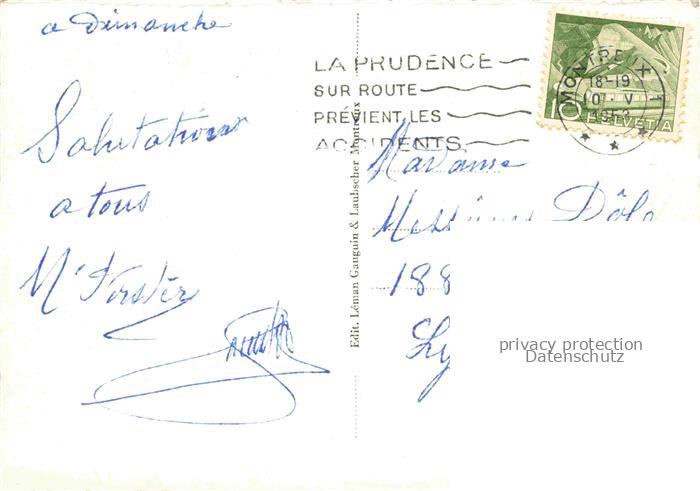 a Dimanche
Salutations
a tous
LA PRUDENCE
SUR ROUTE
PRÉVIENT LES
ACCIDENTS
MONTREUX 1
18-19
10·V
1953
10
HELVETIA
Edit. Léman Gauguin & Laubscher Montreux
Madame
Dôle
188
Ly
privacy protection
Datenschutz